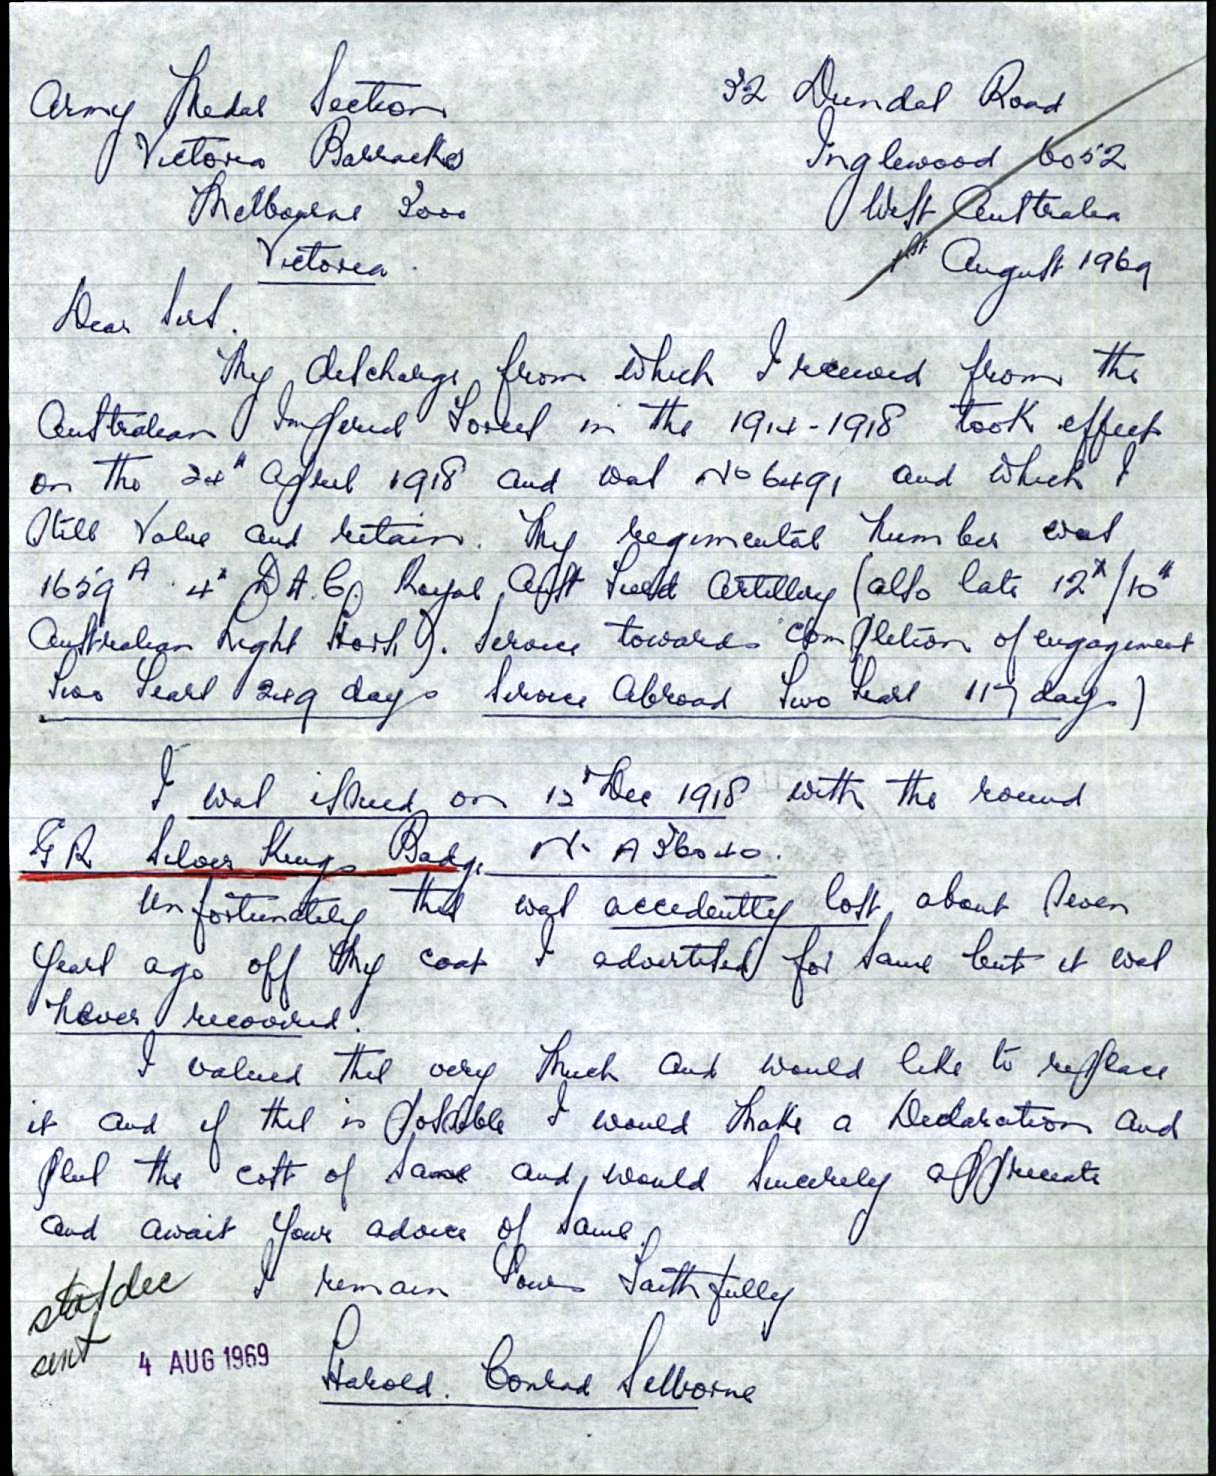 Army Medal Section
Victoria Barracks
Melbourne 3000
Victoria.
32 Dundas Road
Inglewood 6052
West Australia
1st August 1969
Dear Sirs.
My discharge from which I received from the
Australian Imperial Forces in the 1914-1918 took effect
on the 24th April 1918 and was No 6491 and which I
still value and retain. My regimental number was
1659A 4th D.A.C. Royal Aust Field Artillery (also late 12th/10th
Australian Light Horse). Service towards completion of engagement
Two Years 249 days Service Abroad Two Years 117 days)
I was issued on 12th Dec 1918 with the round
GR Silver Kings Badge No A36040.
Unfortunately this was accidently lost about seven
years ago off my coat I advertised for same but it was
never recovered.
I valued this very much and would like to replace
it and if this is possible I would make a Declaration and
plus the cost of same and would sincerely appreciate
and await your advice of same.
I remain Yours Faithfully
Harold. Conrad Selborne
stat/dec
sent
4 AUG 1969